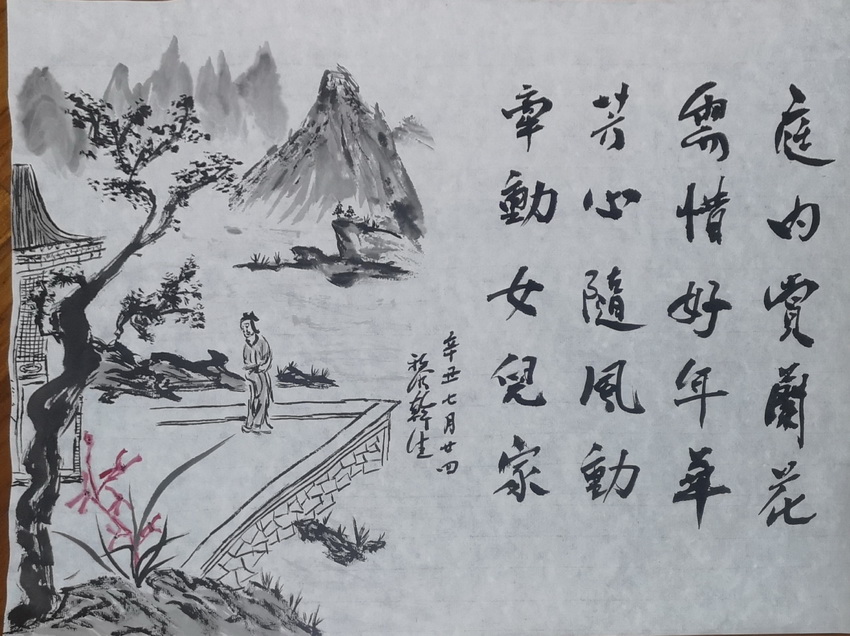 庭內賞蘭花
需惜好年華
芳心隨風動
牽動女兒家
辛丑七月廿四